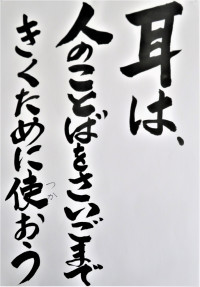 耳は、
人のことばをさいごまで
きくために使おう
つか